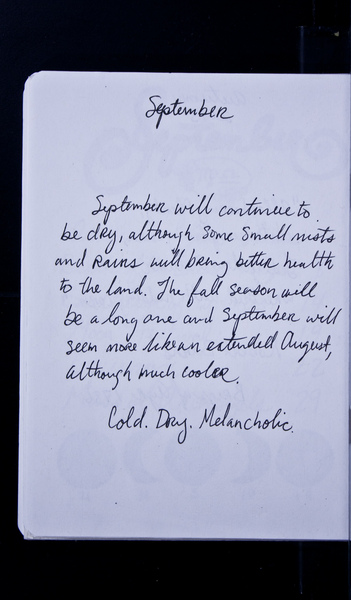 September
September will continue to
be dry, although some small mists
and rains will bring better health
to the land. The fall season will
be a long one and September will
seem more like an extended August,
although much cooler.
Cold. Dry. Melancholic.